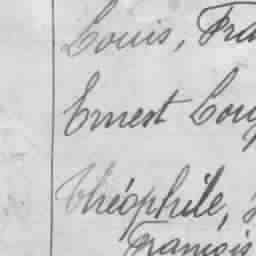 Louis, Fra
Ernest Lou
Théophile,
François